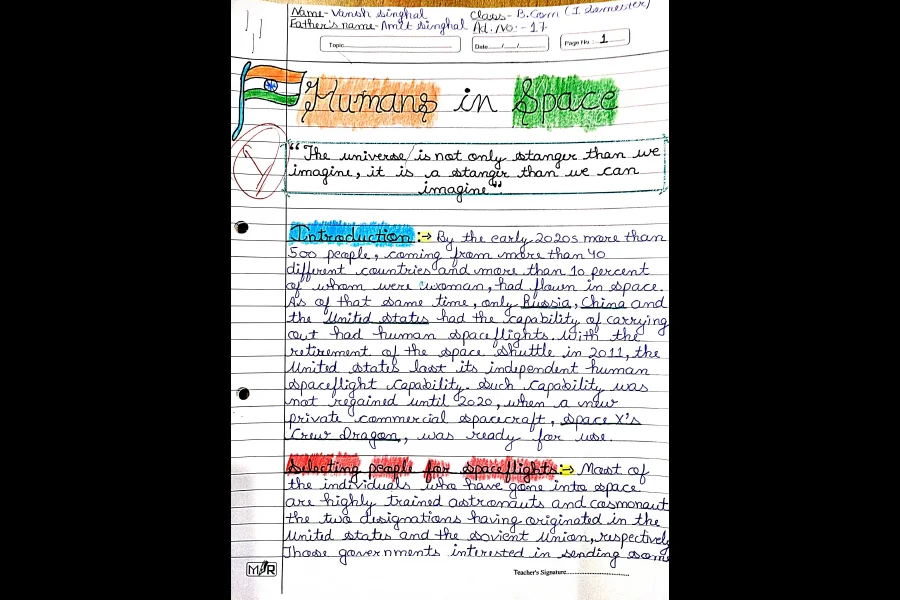 Name- Vansh Singhal Class- B.Com (I semester)
Father's name- Amit singhal Ad. No:- 17
Topic
Date / /
Page No. 1
Humans in Space
"The universe is not only stanger than we
imagine, it is a stanger than we can
imagine"
Introduction :→ By the early 2020s more than
500 people, coming from more than 40
different countries and more than 10 percent
of whom were woman, had flown in space.
As of that same time, only Russia, China and
the United states had the capability of carrying
out had human spaceflights. With the
retirement of the space shuttle in 2011, the
United states last its independent human
spaceflight capability. Such capability was
not regained until 2020, when a new
private commercial spacecraft, space X's
Crew Dragon, was ready for use.
Selecting people for spaceflights :→ Most of
the individuals who have gone into space
are highly trained astronauts and cosmonaut
the two designations having originated in the
United states and the sovient Union, respectively
Those governments interested in sending some
Teacher's Signature